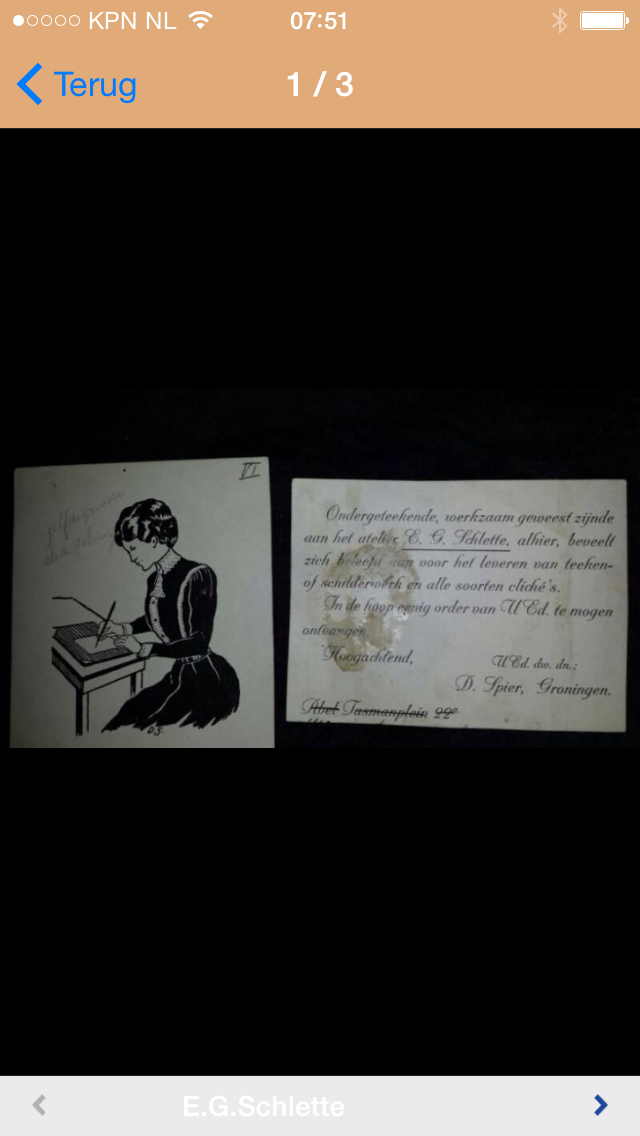 KPN NL
07:51
Terug
1 / 3
VI
Ondergeteekende, werkzaam geweest zijnde
aan het atelier E. G. Schlette, alhier, beveelt
zich beleefd aan voor het leveren van teeken-
of schilderwerk en alle soorten cliché's.
In de hoop eenig order van UEd. te mogen
ontvangen,
Hoogachtend,
UEd. dw. dn.:
D. Spier, Groningen.
Abel Tasmanplein 22a
E.G.Schlette